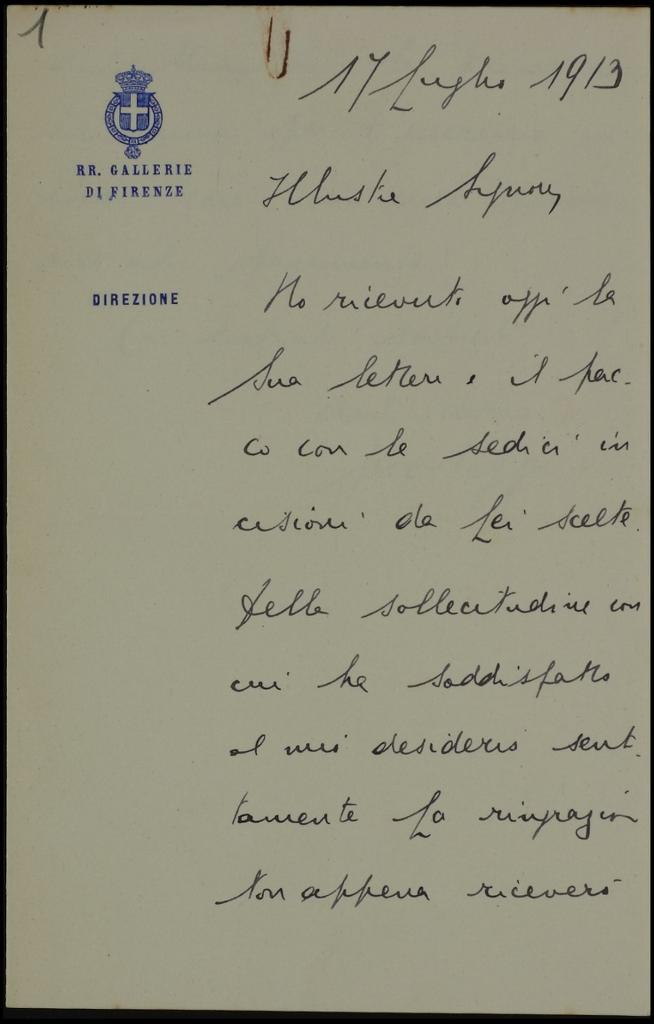 1
17 Luglio 1913
RR. GALLERIE
DI FIRENZE
DIREZIONE
Illustre Signore,
Ho ricevuto oggi la
Sua lettera e il pac-
co con le sedici in
cisioni da Lei scelte.
Della sollecitudine con
cui ha soddisfatto
al mio desiderio sent.
tamente La ringrazio
Non appena riceverò